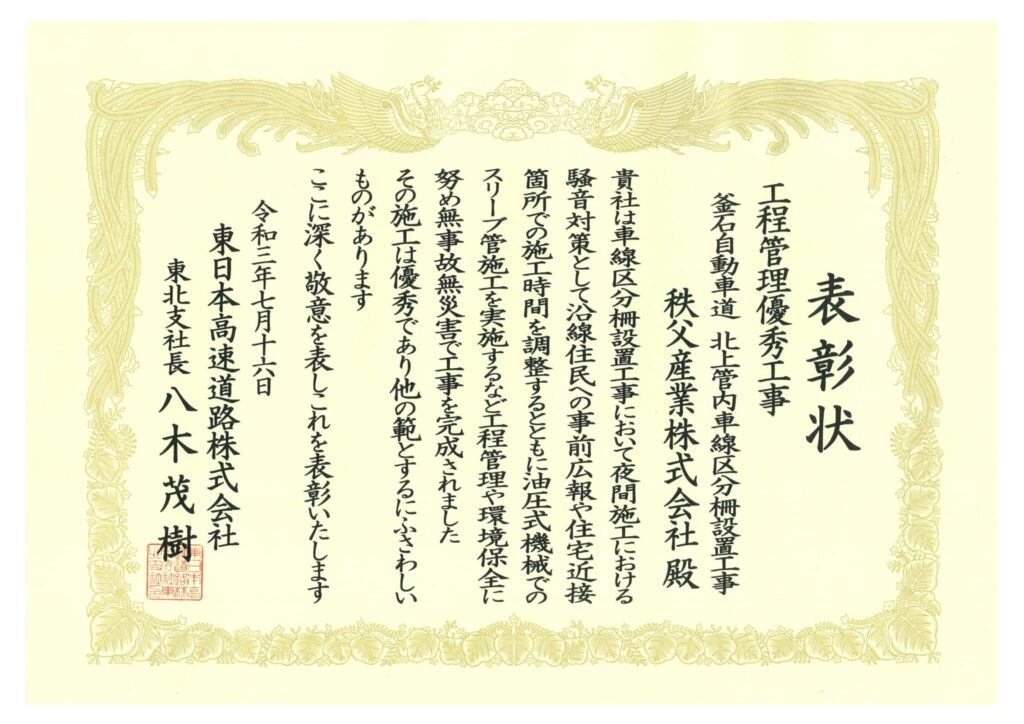 表彰状
工程管理優秀工事
釜石自動車道 北上管内車線区分柵設置工事
秩父産業株式会社 殿
貴社は車線区分柵設置工事において夜間施工における
騒音対策として沿線住民への事前広報や住宅近接
箇所での施工時間を調整するとともに油圧式機械での
スリーブ管施工を実施するなど工程管理や環境保全に
努め無事故無災害で工事を完成されました
その施工は優秀であり他の範とするにふさわしい
ものがあります
ここに深く敬意を表しこれを表彰いたします
令和三年七月十六日
東日本高速道路株式会社
東北支社長 八木茂樹